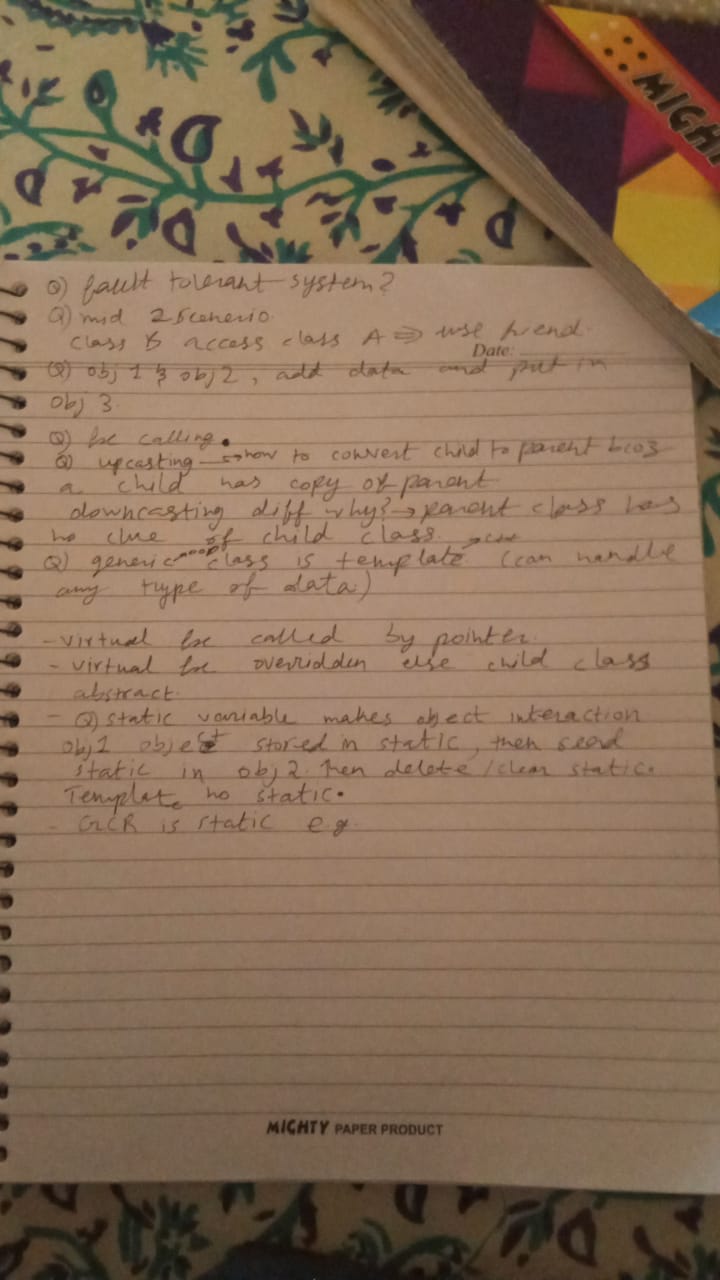 MIGHTY
Q) fault tolerant system?
Q) mid 2 Scenerio.
class B access class A ⇒ use friend.
Date:
Q) obj 1 & obj 2, add data and put in
obj 3.
Q) fxc calling.
Q) upcasting → how to convert child to parent bcoz
a child has copy of parent
downcasting diff why? → parent class has
no clue of child class.
Q) generic class is template (can handle
any type of data)
- virtual fxc called by pointer.
- virtual fxc overridden else child class
abstract.
- Q) static variable makes object interaction
obj1 object stored in static, then send
static in obj 2. then delete/clear static.
Template no static.
- GCR is static e.g.
MIGHTY PAPER PRODUCT